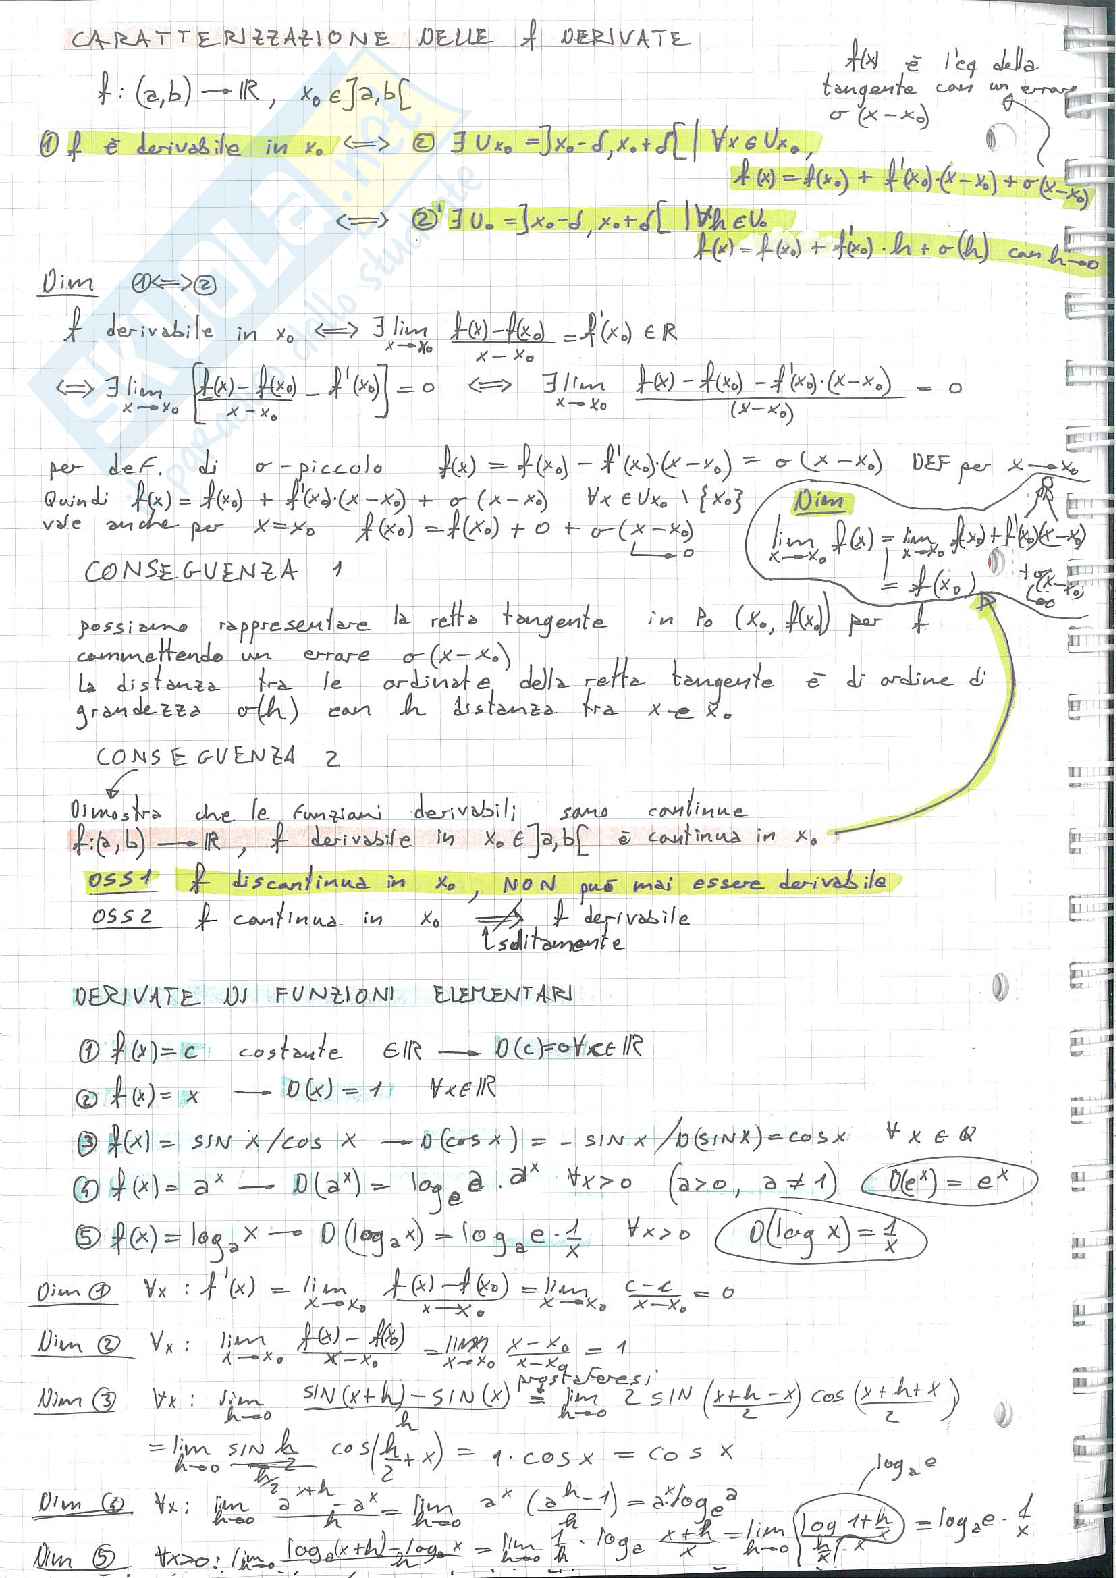 CARATTERIZZAZIONE DELLE f DERIVATE
f(x) è l'eq della
tangente con un errore
σ(x-x₀)
f: (a,b) → ℝ, x₀ ∈ ]a,b[
① f è derivabile in x₀ ⟺ ② ∃ Ux₀ = ]x₀-δ, x₀+δ[ | ∀x ∈ Ux₀,
f(x) = f(x₀) + f'(x₀)·(x-x₀) + σ(x-x₀)
⟺ ②' ∃ U₀ = ]x₀-δ, x₀+δ[ | ∀h ∈ U₀
f(x) = f(x₀) + f'(x₀)·h + σ(h) con h→0
Dim ①⟺②
f derivabile in x₀ ⟺ ∃ lim x→x₀ (f(x)-f(x₀))/(x-x₀) = f'(x₀) ∈ ℝ
⟺ ∃ lim x→x₀ [(f(x)-f(x₀))/(x-x₀) - f'(x₀)] = 0 ⟺ ∃ lim x→x₀ (f(x)-f(x₀)-f'(x₀)·(x-x₀))/(x-x₀) = 0
per def. di σ-piccolo f(x) = f(x₀) - f'(x₀)·(x-x₀) = σ(x-x₀) DEF per x→x₀
Quindi f(x) = f(x₀) + f'(x₀)·(x-x₀) + σ(x-x₀) ∀x ∈ Ux₀ \ {x₀}
vale anche per x=x₀ f(x₀) = f(x₀) + 0 + σ(x-x₀)
→0
Dim
lim x→x₀ f(x) = lim x→x₀ f(x₀) + f'(x₀)(x-x₀)
+σ(x-x₀)
= f(x₀)
→0
CONSEGUENZA 1
possiamo rappresentare la retta tangente in P₀ (x₀, f(x₀)) per f
commettendo un errore σ(x-x₀)
La distanza tra le ordinate della retta tangente è di ordine di
grandezza σ(h) con h distanza tra x e x₀
CONSEGUENZA 2
Dimostra che le funzioni derivabili sono continue
f:(a,b) → ℝ, f derivabile in x₀ ∈ ]a,b[ è continua in x₀
OSS1 f discontinua in x₀, NON può mai essere derivabile
OSS2 f continua in x₀ ⇏ f derivabile
solitamente
DERIVATE DI FUNZIONI ELEMENTARI
① f(x) = c costante ∈ℝ → D(c)=0 ∀x∈ℝ
② f(x) = x → D(x) = 1 ∀x∈ℝ
③ f(x) = SIN x/cos x → D(cos x) = - SIN x / D(SINX) = cosx ∀ x ∈ ℝ
④ f(x) = aˣ → D(aˣ) = logₑ a · aˣ ∀x>0 (a>0, a≠1) D(eˣ) = eˣ
⑤ f(x) = logₐx → D(logₐx) = logₐe · 1/x ∀x>0 D(log x) = 1/x
Dim ① ∀x: f'(x) = lim x→x₀ (f(x)-f(x₀))/(x-x₀) = lim x→x₀ (c-c)/(x-x₀) = 0
Dim ② ∀x: lim x→x₀ (f(x)-f(x₀))/(x-x₀) = lim x→x₀ (x-x₀)/(x-x₀) = 1
prostaferesi
Dim ③ ∀x: lim h→0 (SIN(x+h)-SIN(x))/h = lim h→0 2 SIN((x+h-x)/2) cos((x+h+x)/2)
= lim h→0 (SIN h/2)/(h/2) cos(h/2+x) = 1·cosx = cos x
logₐe
Dim ④ ∀x: lim h→0 (aˣ⁺ʰ-aˣ)/h = lim h→0 aˣ (aʰ-1)/h = aˣ logₑa
Dim ⑤ ∀x>0: lim h→0 (logₐ(x+h)-logₐx)/h = lim h→0 1/h · logₐ (x+h)/x = lim h→0 (log 1+h/x)/(h/x · x) = logₐe · 1/x